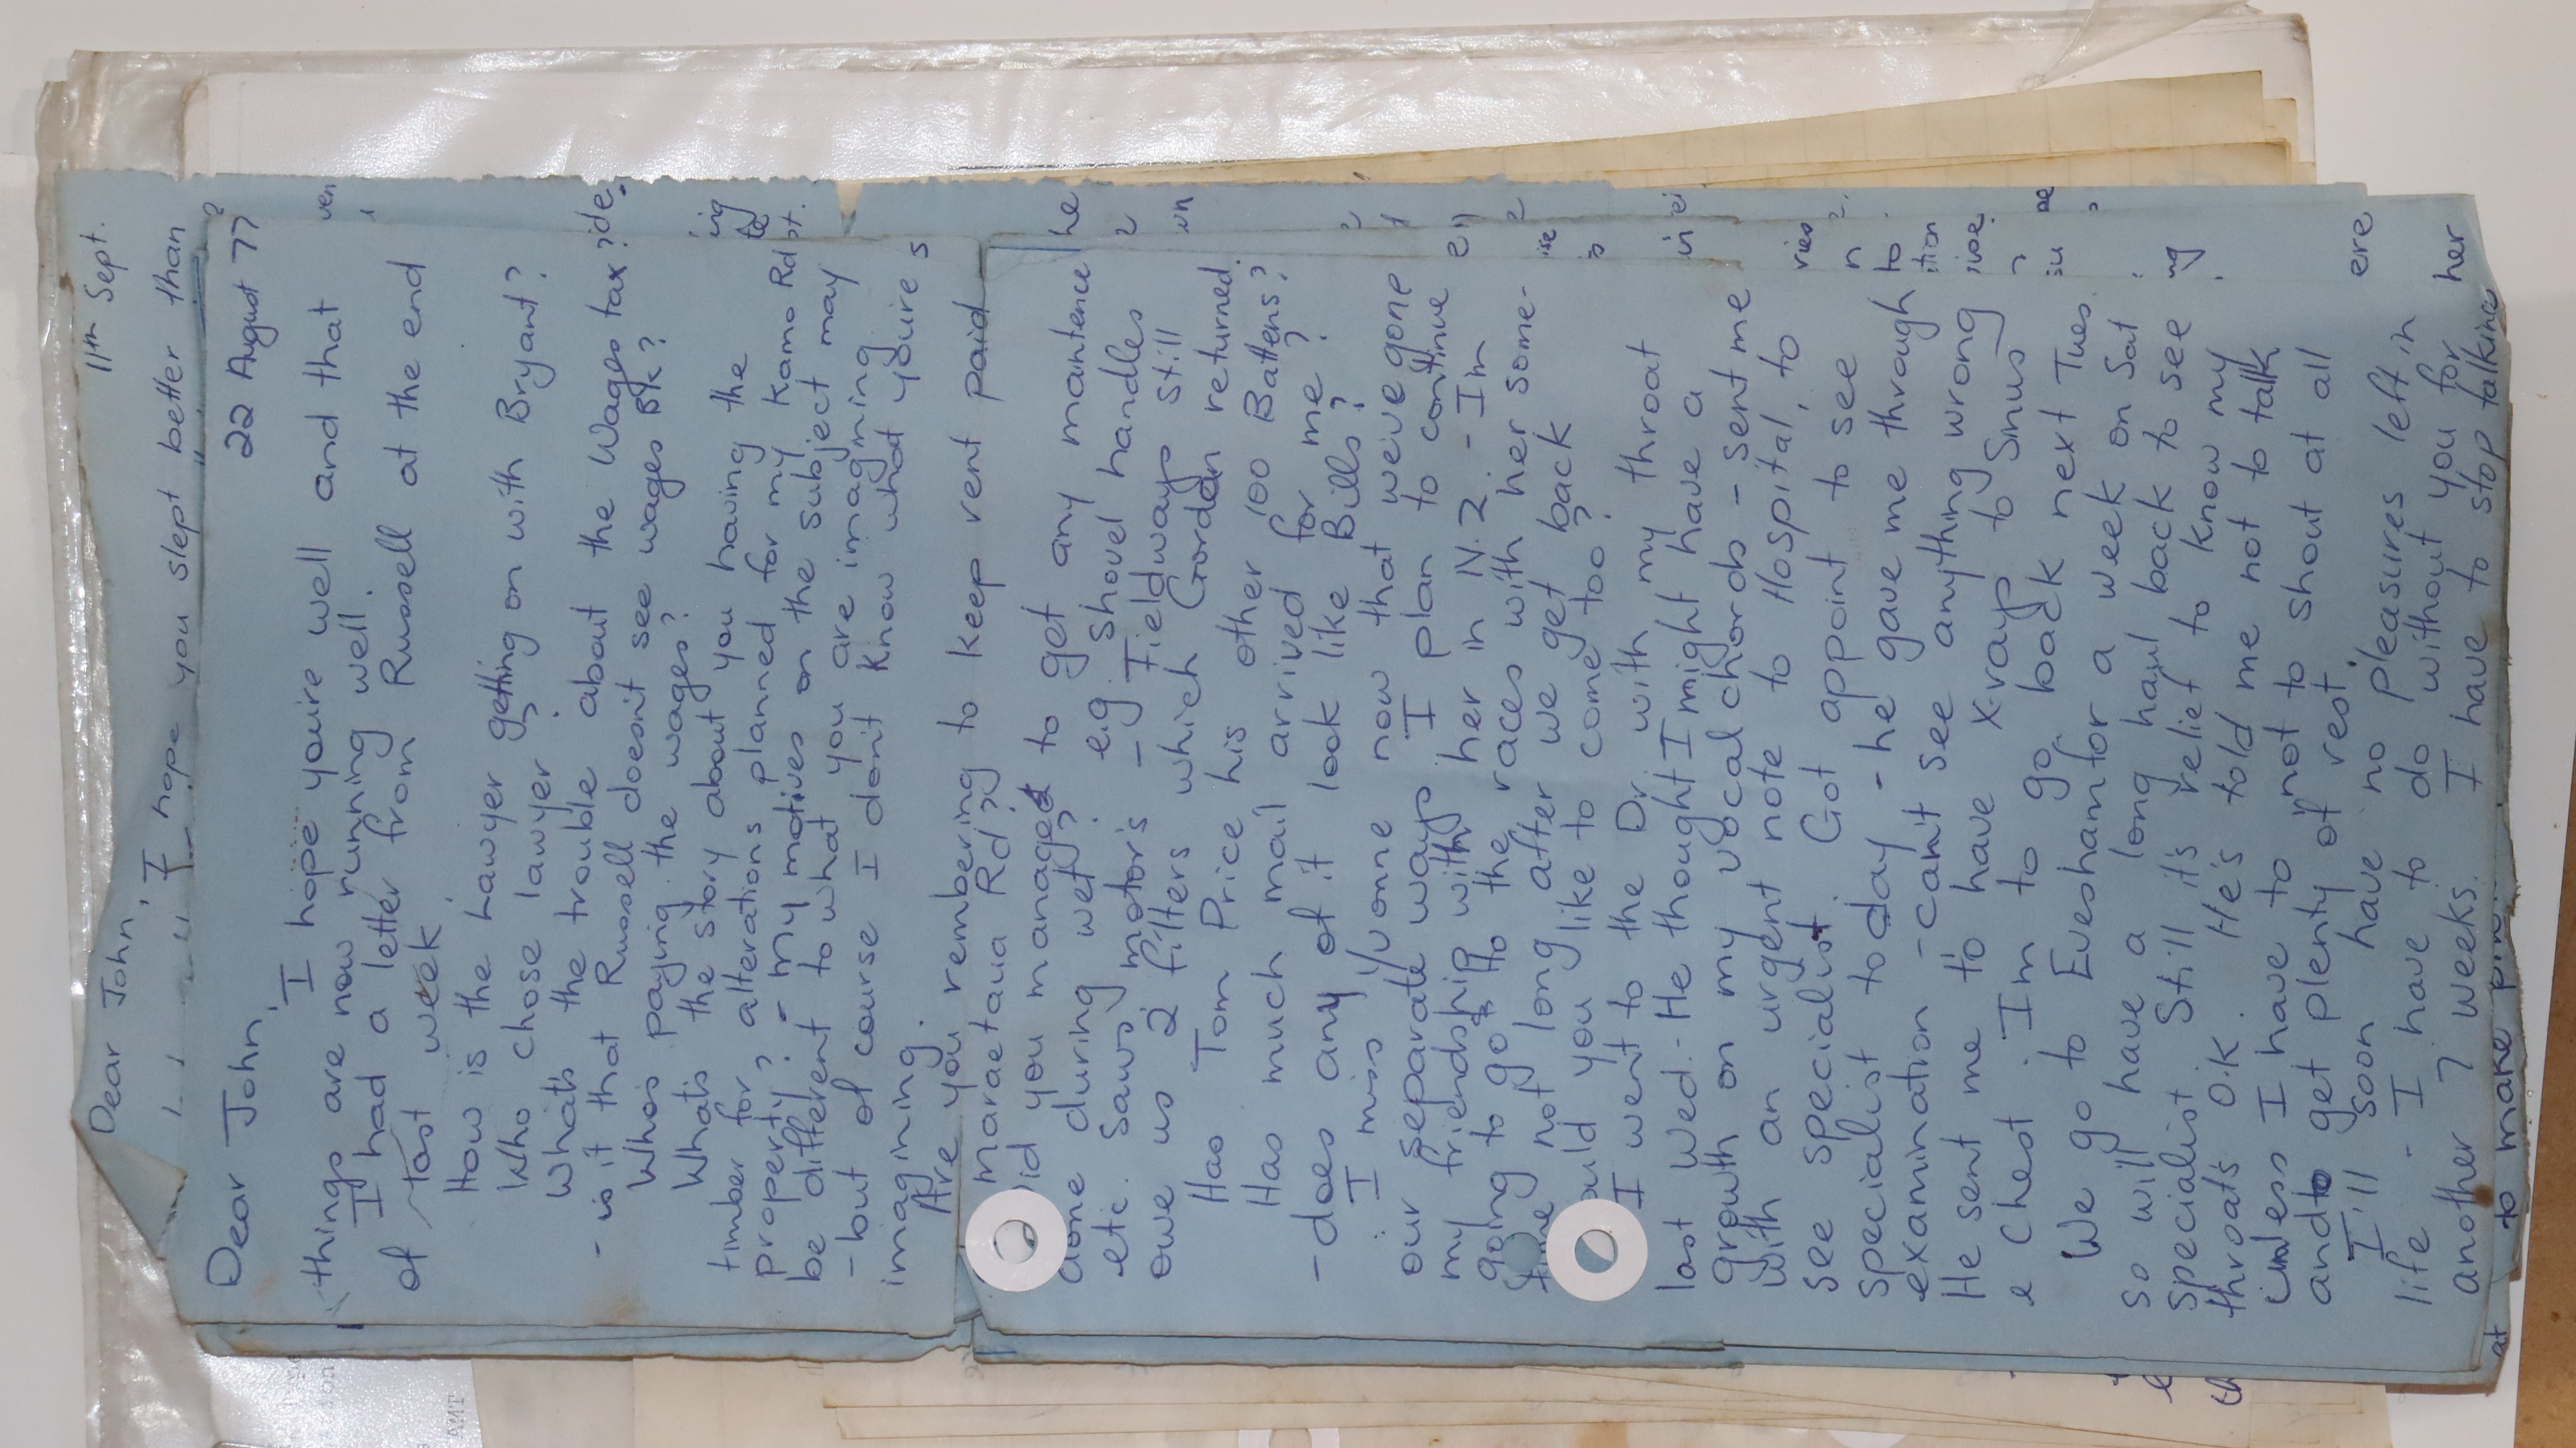 11th Sept.
Dear John,
I hope you slept better than
22 August 77
Dear John,
I hope you're well and that
things are now running well.
I had a letter from Russell at the end
of last week.
How is the Lawyer getting on with Bryant?
Who chose lawyer?
Whats the trouble about the Wages tax?
- is it that Russell doesn't see wages Bk?
Who's paying the wages?
Whats the story about you having the
timber for alterations planned for my Kamo Rd
property? - my motives on the subject may
be different to what you are imagining
- but of course I don't know what you're
imagining.
Are you remembering to keep rent paid
maraetaua Rd?
id you manage to get any maintence
done during wet? eg. shovel handles
etc. Saws motor's - eg Fieldways still
owe us 2 filters which Gordon returned.
Has Tom Price his other 100 Battens?
Has much mail arrived for me?
- does any of it look like Bills?
I miss Yvonne now that we've gone
our seperate ways I plan to continue
my friendship with her in N.Z. - I'm
going to go to the races with her some-
time not long after we get back
ould you like to come too?
I went to the Dr with my throat
last Wed. - He thought I might have a
growth on my vocal chords - sent me
with an urgent note to Hospital, to
see specialist. Got appoint to see
specialist today - he gave me through
examination - can't see anything wrong
He sent me to have X-rays to Sinus
e chest. I'm to go back next Tues.
We go to Evesham for a week on Sat
so will have a long haul back to see
specialist. Still it's relief to know my
throats O.K. He's told me not to talk
unless I have to not to shout at all
and to get plenty of rest.
I'll soon have no pleasures left in
life - I have to do without you for
another 7 weeks. I have to stop talking
to make
ven
de.
ing
he
un
ries
to
ition
ng
ere
her
at